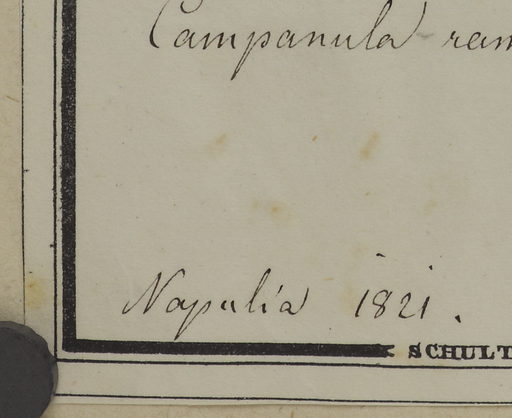 Campanula ram
Napulia 1821.
SCHULT